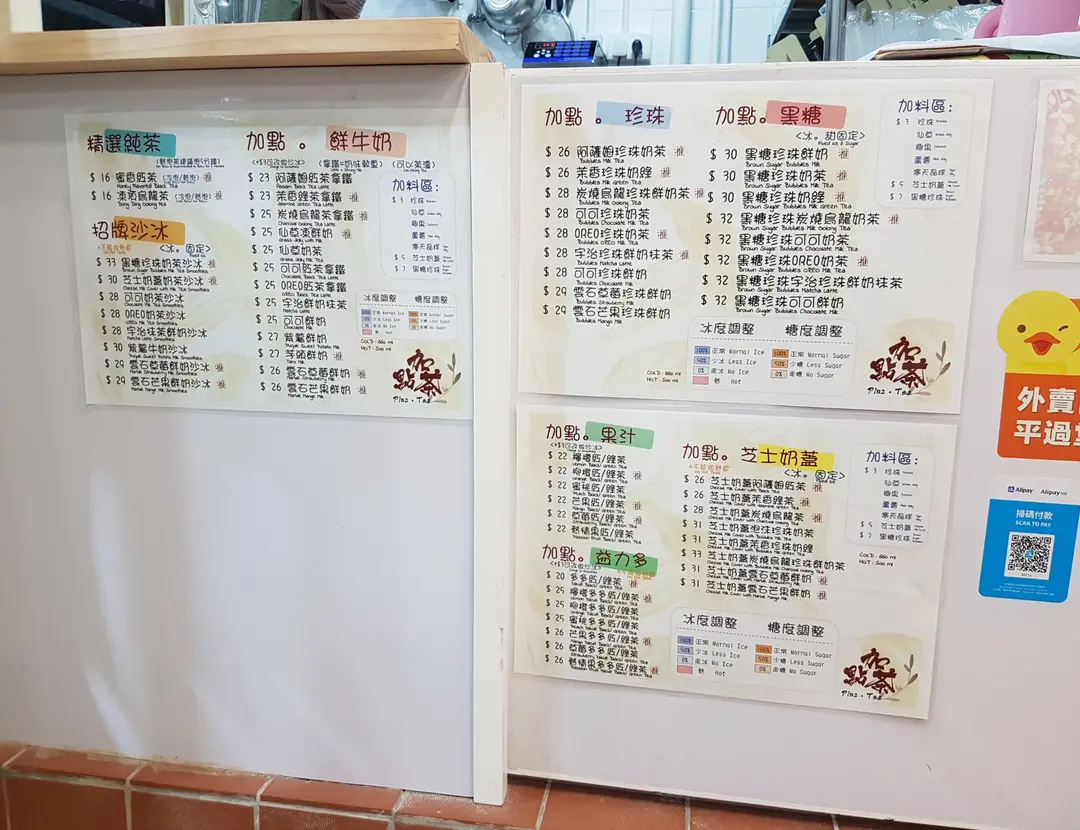 精選純茶
$ 16 蜜香紅茶
Honey Flavored Black Tea
$ 16 凍頂烏龍茶
Dong Ding Oolong Tea
招牌沙冰
<冰。固定>
$ 33 黑糖珍珠奶茶沙冰 推
Brown Sugar Bubbles Milk Tea Smoothies
$ 30 芝士奶蓋奶茶沙冰 推
$ 28 可可奶茶沙冰
$ 28 OREO奶茶沙冰
OREO Milk Tea Smoothies
$ 28 宇治抹茶鮮奶沙冰
Matcha Latte Smoothies
$ 30 紫薯牛奶沙冰
Purple Sweet Potato Milk Smoothies
$ 29 雲石草莓鮮奶沙冰 推
$ 29 雲石芒果鮮奶沙冰 推
加點 。 鮮牛奶
<+$3可改做沙冰>
(拿鐵=奶味較重)
(可以茶濃)
$ 23 阿薩姆紅茶拿鐵
Assam Black Tea Latte
$ 23 茉香綠茶拿鐵 推
Jasmine Green Tea Latte
$ 25 炭燒烏龍茶拿鐵 推
Charcoal Oolong Tea Latte
$ 25 仙草凍鮮奶 推
Grass Jelly with Milk
$ 25 仙草奶茶
Grass Jelly Milk Tea
$ 25 可可紅茶拿鐵
Chocolate Black Tea Latte
$ 25 OREO紅茶拿鐵
OREO Black Tea Latte
$ 25 宇治鮮奶抹茶
Matcha Latte
$ 25 可可鮮奶
Chocolate Milk
$ 27 紫薯鮮奶
Purple Sweet Potato Milk
$ 27 芋頭鮮奶 推
Taro Milk
$ 26 雲石草莓鮮奶 推
Marble Strawberry Milk
$ 26 雲石芒果鮮奶 推
Marble Mango Milk
加料區:
$ 3 珍珠
仙草
椰果
蘆薈
寒天晶球
$ 5 芝士奶蓋
$ 7 黑糖珍珠
冰度調整 糖度調整
100% 正常 Normal Ice 100% 正常 Normal Sugar
50% 少冰 Less Ice 50% 少糖 Less Sugar
0% 走冰 No Ice 0% 走糖 No Sugar
熱 Hot
COLD : 660 ml
HOT : 500 ml
加點茶
Plus · Tea
加點 。 珍珠
$ 26 阿薩姆珍珠奶茶 推
Bubbles Milk Tea
$ 26 茉香珍珠奶綠 推
Bubbles Milk Green Tea
$ 28 炭燒烏龍珍珠鮮奶茶 推
$ 28 可可珍珠奶茶
Bubbles Chocolate Milk Tea
$ 28 OREO珍珠奶茶 推
Bubbles OREO Milk Tea
$ 28 宇治珍珠鮮奶抹茶 推
Bubbles Matcha Latte
$ 28 可可珍珠鮮奶
Bubbles Chocolate Milk
$ 29 雲石草莓珍珠鮮奶
Bubbles Strawberry Milk
$ 29 雲石芒果珍珠鮮奶
Bubbles Mango Milk
加點。黑糖
<冰。甜固定>
Fixed Ice & Sugar
$ 30 黑糖珍珠鮮奶 推
Brown Sugar Bubbles Milk
$ 30 黑糖珍珠奶茶 推
Brown Sugar Bubbles Milk Tea
$ 30 黑糖珍珠奶綠 推
Brown Sugar Bubbles Milk Green Tea
$ 32 黑糖珍珠炭燒烏龍奶茶 推
$ 32 黑糖珍珠可可奶茶
Brown Sugar Bubbles Chocolate Milk Tea
$ 32 黑糖珍珠OREO奶茶 推
Brown Sugar Bubbles OREO Milk Tea
$ 32 黑糖珍珠宇治珍珠鮮奶抹茶
Brown Sugar Bubbles Matcha Latte
$ 32 黑糖珍珠可可鮮奶
Brown Sugar Bubbles Chocolate Milk
加料區:
$ 3 珍珠
仙草
椰果
蘆薈
寒天晶球
$ 5 芝士奶蓋
$ 7 黑糖珍珠
冰度調整 糖度調整
100% 正常 Normal Ice 100% 正常 Normal Sugar
50% 少冰 Less Ice 50% 少糖 Less Sugar
0% 走冰 No Ice 0% 走糖 No Sugar
熱 Hot
COLD : 660 ml
HOT : 500 ml
加點茶
Plus · Tea
加點。果汁
<+$3可改做沙冰>
$ 22 檸檬紅/綠茶
Lemon Black/ Green Tea
$ 22 柳橙紅/綠茶 推
Orange Black/ Green Tea
$ 22 蜜桃紅/綠茶
Peach Black/ Green Tea
$ 22 芒果紅/綠茶 推
Mango Black/ Green Tea
$ 22 草莓紅/綠茶 推
Strawberry Black/ Green Tea
$ 22 熱情果紅/綠茶
Passion Fruit Black/ Green Tea
加點。益力多
<+$3可改做沙冰>
$ 20 多多紅/綠茶 推
$ 25 檸檬多多紅/綠茶
$ 25 柳橙多多紅/綠茶
$ 25 蜜桃多多紅/綠茶
$ 26 芒果多多紅/綠茶 推
$ 26 草莓多多紅/綠茶
$ 26 熱情果多多紅/綠茶 推
加點。芝士奶蓋
<冰。固定>
$ 26 芝士奶蓋阿薩姆紅茶 推
$ 26 芝士奶蓋茉香綠茶 推
$ 28 芝士奶蓋炭燒烏龍茶 推
$ 31 芝士奶蓋泡沫珍珠奶茶
$ 31 芝士奶蓋茉香珍珠奶綠
$ 33 芝士奶蓋炭燒烏龍珍珠鮮奶茶
$ 31 芝士奶蓋雲石草莓鮮奶 推
$ 31 芝士奶蓋雲石芒果鮮奶 推
加料區:
$ 3 珍珠
仙草
椰果
蘆薈
寒天晶球
$ 5 芝士奶蓋
$ 7 黑糖珍珠
COLD : 660 ml
HOT : 500 ml
冰度調整 糖度調整
100% 正常 Normal Ice 100% 正常 Normal Sugar
50% 少冰 Less Ice 50% 少糖 Less Sugar
0% 走冰 No Ice 0% 走糖 No Sugar
熱 Hot
加點茶
Plus · Tea
外賣
平過
Alipay AlipayHK
掃碼付款
SCAN TO PAY